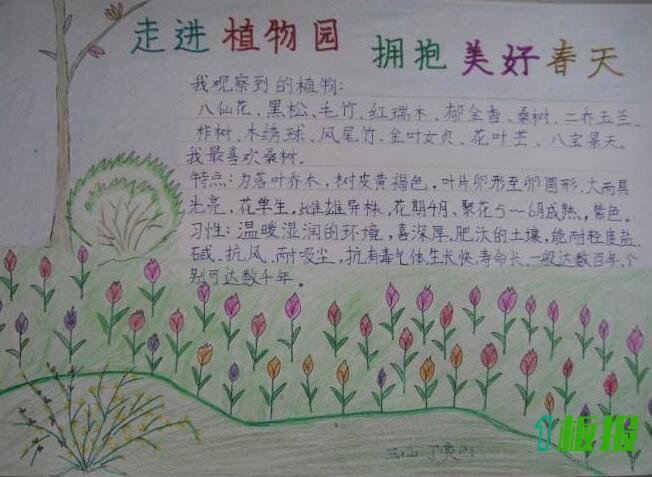 走进植物园 拥抱美好春天
我观察到的植物:
八仙花、黑松、毛竹、红瑞木、郁金香、桑树、二乔玉兰、
柞树、木绣球、凤尾竹、金叶女贞、花叶芒、八宝景天。
我最喜欢桑树。
特点:为落叶乔木,树皮黄褐色,叶片卵形至卵圆形,大而具
光亮,花单生,雌雄异株,花期4月、聚花5~6月成熟,紫色。
习性:温暖湿润的环境,喜深厚,肥沃的土壤,能耐轻度盐
碱、抗风、耐吸尘,抗有毒气体生长快,寿命长、一般达数百年,个
别可达数千年。
1板报